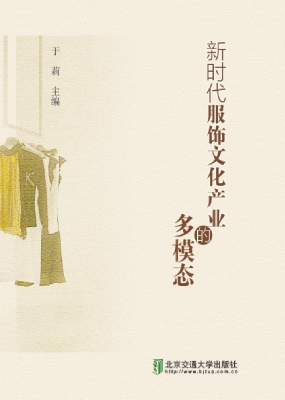 于莉 主编
新时代服饰文化产业的多模态
北京交通大学出版社
http://www.bjtup.com.cn